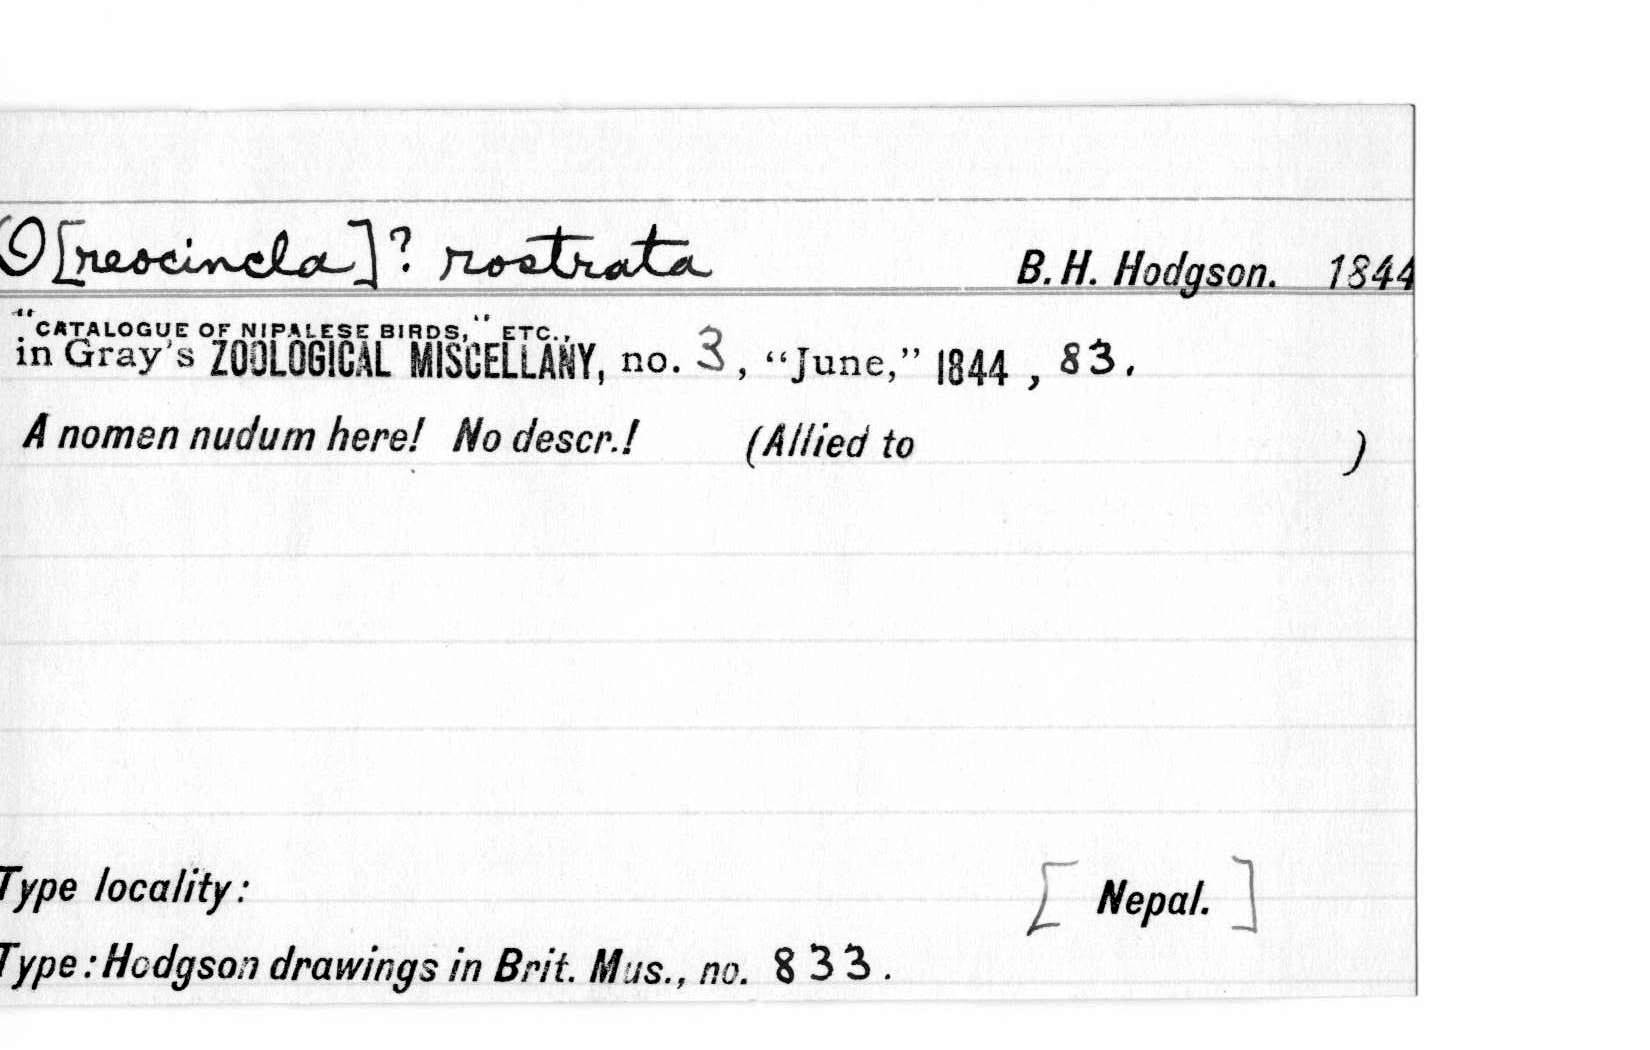 O[reocincla]? rostrata B. H. Hodgson. 1844
"CATALOGUE OF NIPALESE BIRDS," ETC.,
in Gray's ZOOLOGICAL MISCELLANY, no. 3, "June," 1844, 83.
A nomen nudum here! No descr.! (Allied to )
Type locality: [Nepal.]
Type: Hodgson drawings in Brit. Mus., no. 833.